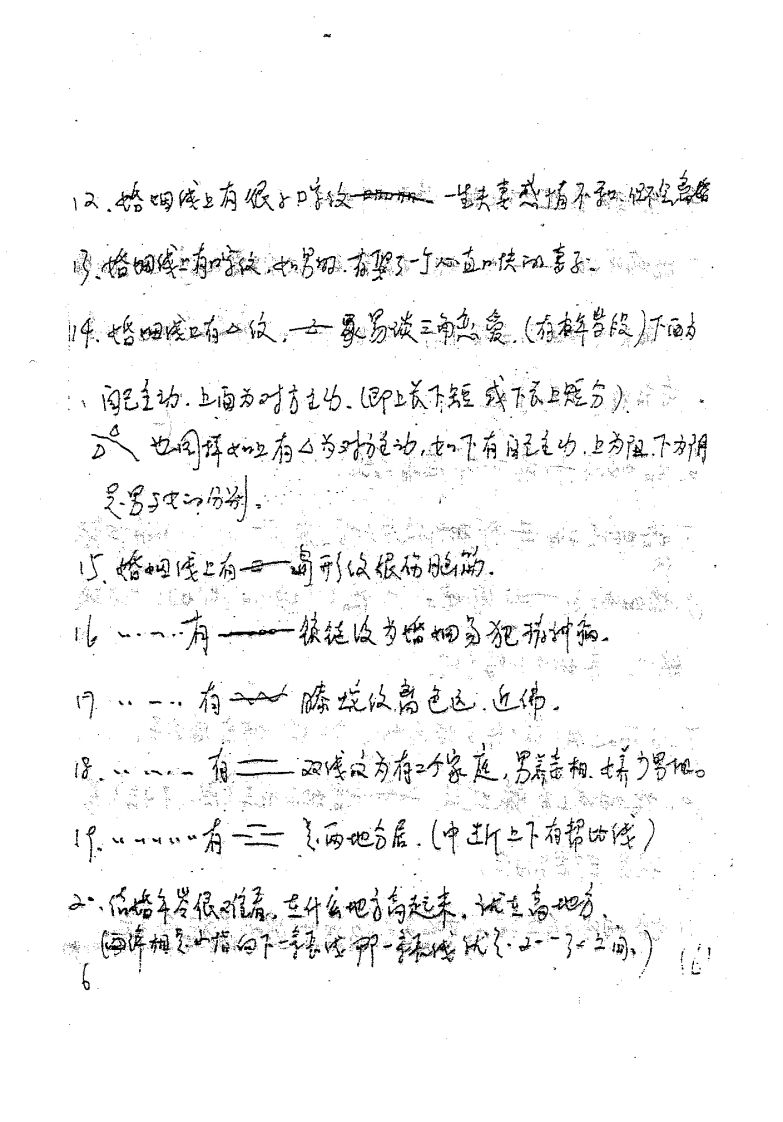 12、婚姻线上有很多口字纹 一生夫妻感情不和、但不会离婚
13、婚姻线上有口字纹,如男的、有娶了一个心直口快的妻子。
14、婚姻线上有△纹, 易谈三角恋爱.(有年岁段)下面为
自己主动.上面为对方主动.(即上长下短或下长上短分)
也同样如上有△为对方主动,如下有自己主动.上为阳.下为阴
是男与女的分别。
15、婚姻线上有 岛形纹很伤脑筋.
16 〃〃〃有 锁链纹为婚姻易犯神病。
17 〃〃〃有 纹 色 . 近佛。
18.〃〃〃有 双线纹为有2个家庭,男养妻相.女养 男相。
19.〃〃〃〃有 是两地分居.(中断上下有帮助线)
20.结婚年岁很难看,在什么地方高起来.就在高地方.
(两 相 小指的下一条长线那一条长线就是.2 — 3 之间。)
6
16